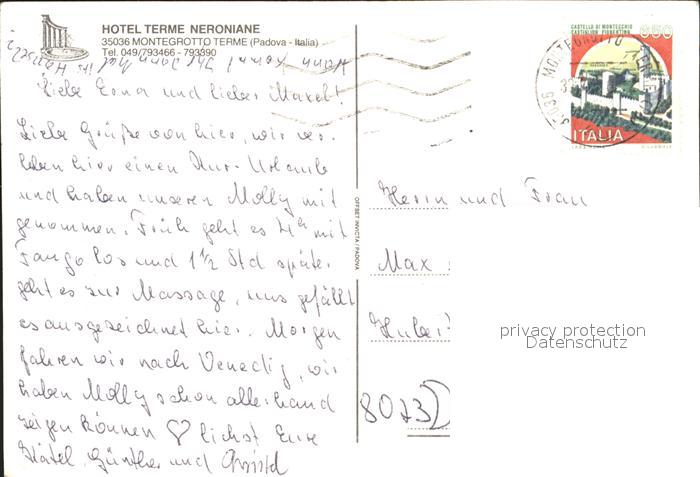 HOTEL TERME NERONIANE
35036 MONTEGROTTO TERME (Padova - Italia)
Tel. 049/793466 - 793390
Wann kommt Ihr
Liebe Erna und lieber Maxl!
Liebe Grüße von hier, wir ver-
leben hier einen Kur-Urlaub
und haben unseren Molly mit
genommen. Früh geht es 4h mit
Fango los und 1 1/2 Std später
geht es zur Massage, uns gefällt
es ausgezeichnet hier. Morgen
fahren wir nach Venedig, wir
haben Molly schon allerhand
zeigen können ♡ lichst Eure
Günther und
OFFSET INVICTA / PADOVA
CASTELLO DI MONTECCHIO
CASTIGLION FIORENTINO
850
ITALIA
35036 MONTEGROTTO TERME
Herrn und Frau
Max
Huber
privacy protection
Datenschutz
8023